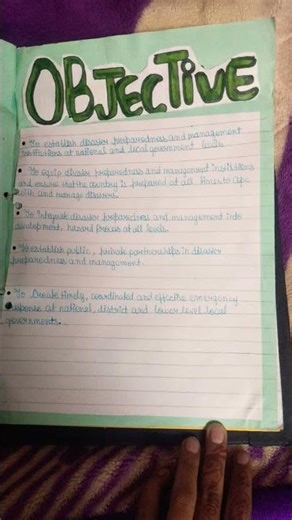 OBJECTIVE
• To establish disaster preparedness and management
institutions at national and local government levels
• To equip disaster preparedness and management institutions
and ensure that the country is prepared at all times to cope
with and manage disasters.
• To Integrate disaster preparedness and management into
development process at all levels.
• To establish public, private partnerships in disaster
preparedness and management.
• To Create timely, coordinated and effective emergency
response at national, district and lower level local
governments.